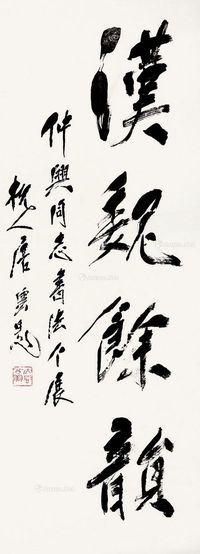 漢魏餘韻
仲興同志書法个展
杭人唐雲題